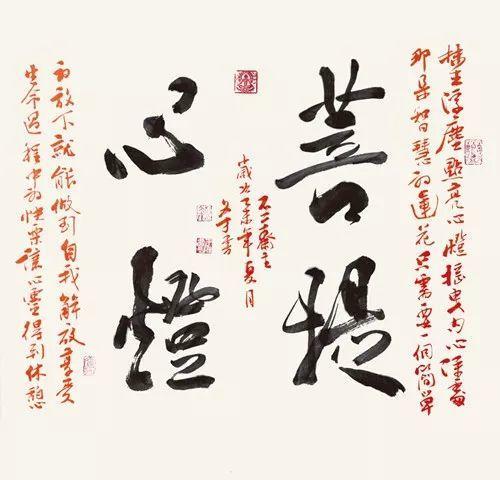 浮塵點亮心燈摇曳内心深處
那朵智慧的蓮花只需要一個簡單
菩提
不二齋主
乙未年夏月
心燈
的放下就能做到自我解放享受
生命過程中的快樂讓心靈得到休憩